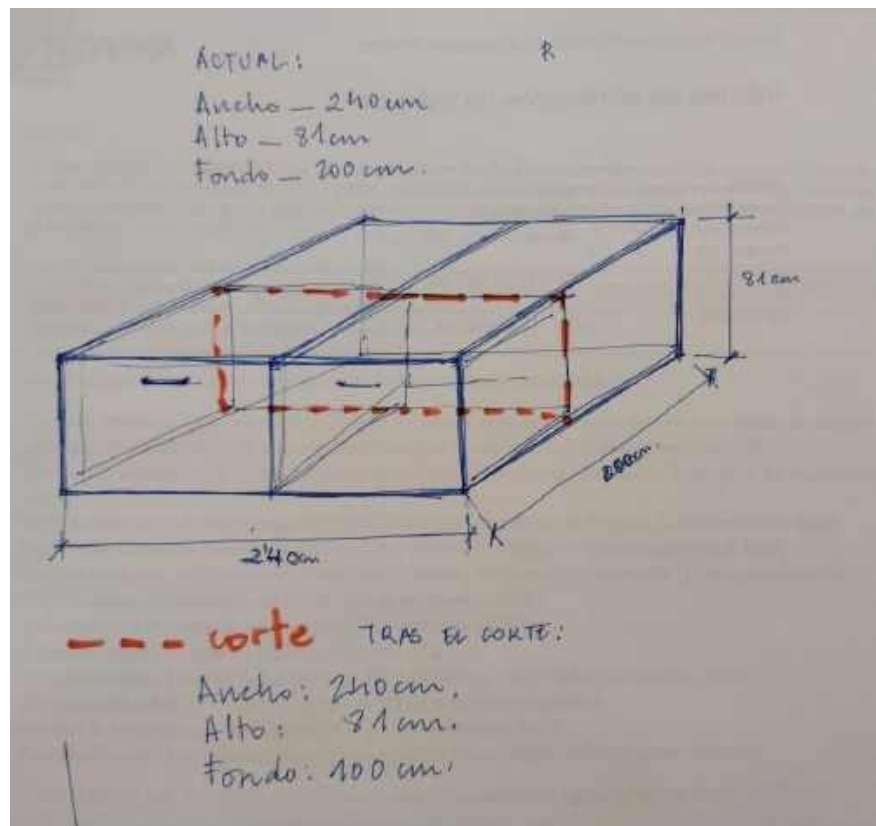 ACTUAL:
R
Ancho – 240 cm
Alto – 81 cm
Fondo – 200 cm.
81 cm
200cm.
240 cm
corte TRAS EL CORTE:
Ancho: 240 cm.
Alto: 81 cm.
Fondo: 100 cm.